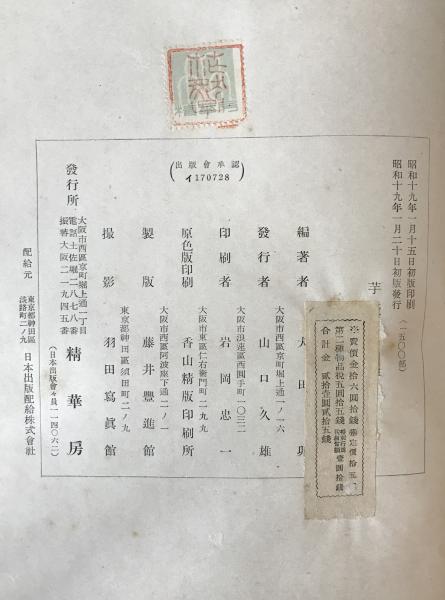 昭和十九年一月十五日初版印刷
昭和十九年一月二十日初版發行
(一五〇〇部)
芋
※賣價金拾六圓拾錢
第二種物品税五圓拾五錢
壹圓拾錢
合計金 貳拾壹圓貳拾五錢
編著者 太田
發行者 山口久雄
大阪市西區京町堀上通一ノ一六
印刷者 岩岡忠一
大阪市浪速區西圓手町一〇三二
原色版印刷 香山精版印刷所
大阪市東區仁右衞門町二九九
製版 藤井豐進館
大阪市西區阿波座下通二ノ一
撮影 羽田寫眞館
東京都神田區須田町二ノ九
(出版會承認 イ170728)
發行所 精華房
大阪市西區京町堀上通一丁目
電話土佐堀二八七八番
振替大阪二一九四五番
(日本出版會々員一一四〇六二)
配給元 東京都神田區淡路町二ノ九 日本出版配給株式會社